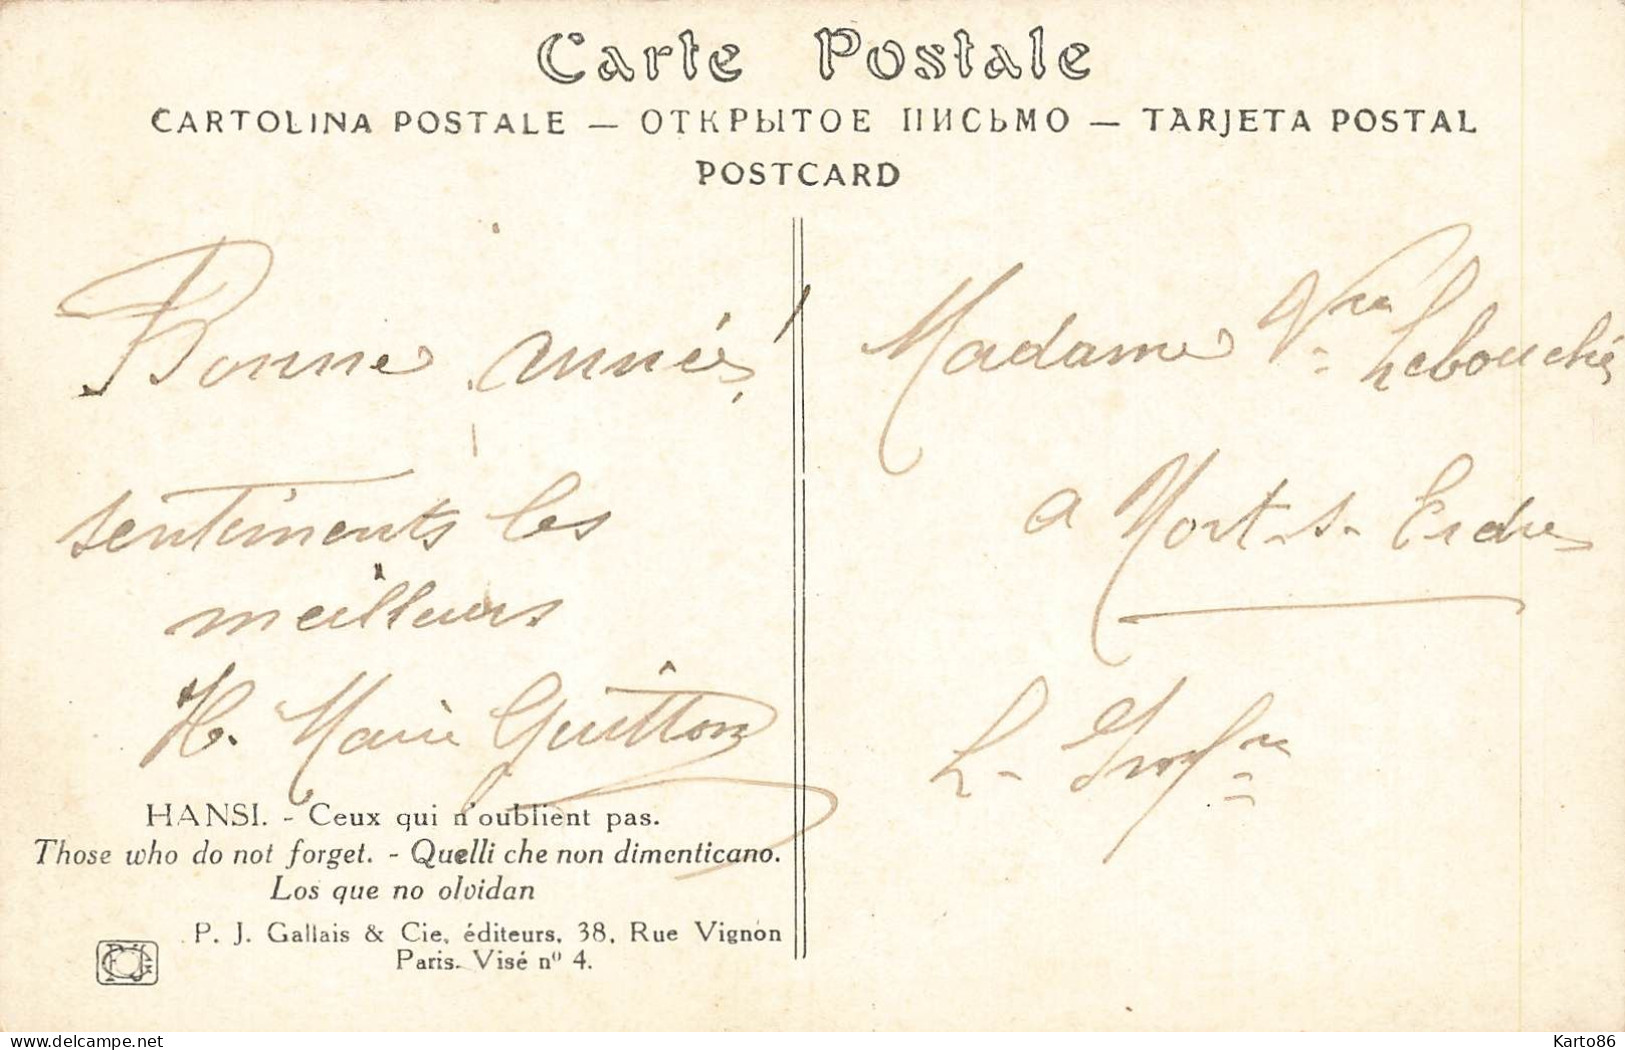 Carte Postale
CARTOLINA POSTALE — ОТКРЫТОЕ ПИСЬМО — TARJETA POSTAL
POSTCARD
Bonne année!
sentiments les
meilleurs
H. Marie Guitton
HANSI. - Ceux qui n'oublient pas.
Those who do not forget. - Quelli che non dimenticano.
Los que no olvidan
P. J. Gallais & Cie, éditeurs, 38, Rue Vignon
Paris. Visé nº 4.
Madame Vve Lebouché
a Nort-s-Erdre
L. Infre
delcampe.net
Karto86